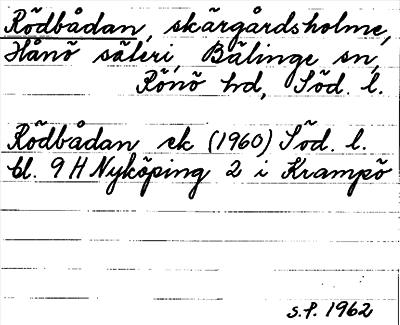 Rödbådan, skärgårdsholme,
Hånö säteri, Bälinge sn,
Rönö hd, Söd. l.
Rödbådan ek (1960) Söd. l.
bl. 9 H Nyköping 2 i Krampö
s.f. 1962